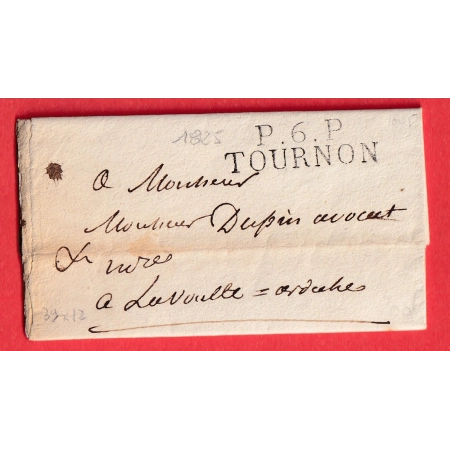 1825
P. 6. P
TOURNON
a Monsieur
Monsieur Dupin avocat
a Lavoulte = ardeche
39x12